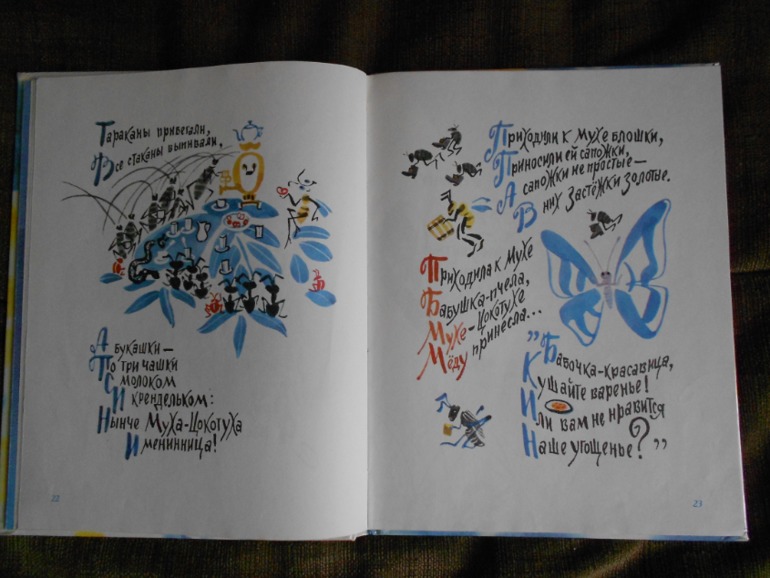 Тараканы прибегали,
Все стаканы выпивали,
А букашки —
По три чашки
С молоком
И крендельком:
Нынче Муха-Цокотуха
Именинница!
22
Приходили к Мухе блошки,
Приносили ей сапожки,
А сапожки не простые —
В них застёжки золотые.
Приходила к Мухе
Бабушка-пчела,
Мухе-Цокотухе
Мёду принесла...
„Бабочка-красавица,
Кушайте варенье!
Или вам не нравится
Наше угощенье?”
23